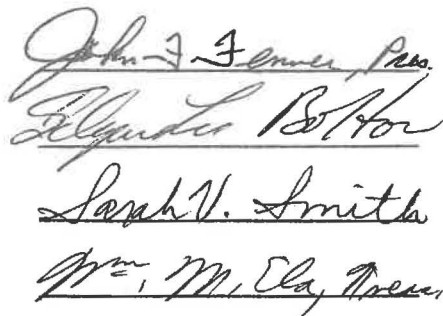 John F. Fenner, Pres.
Edgar Lee Bottor
Sarah V. Smith
Wm. M. Ela, Treas.